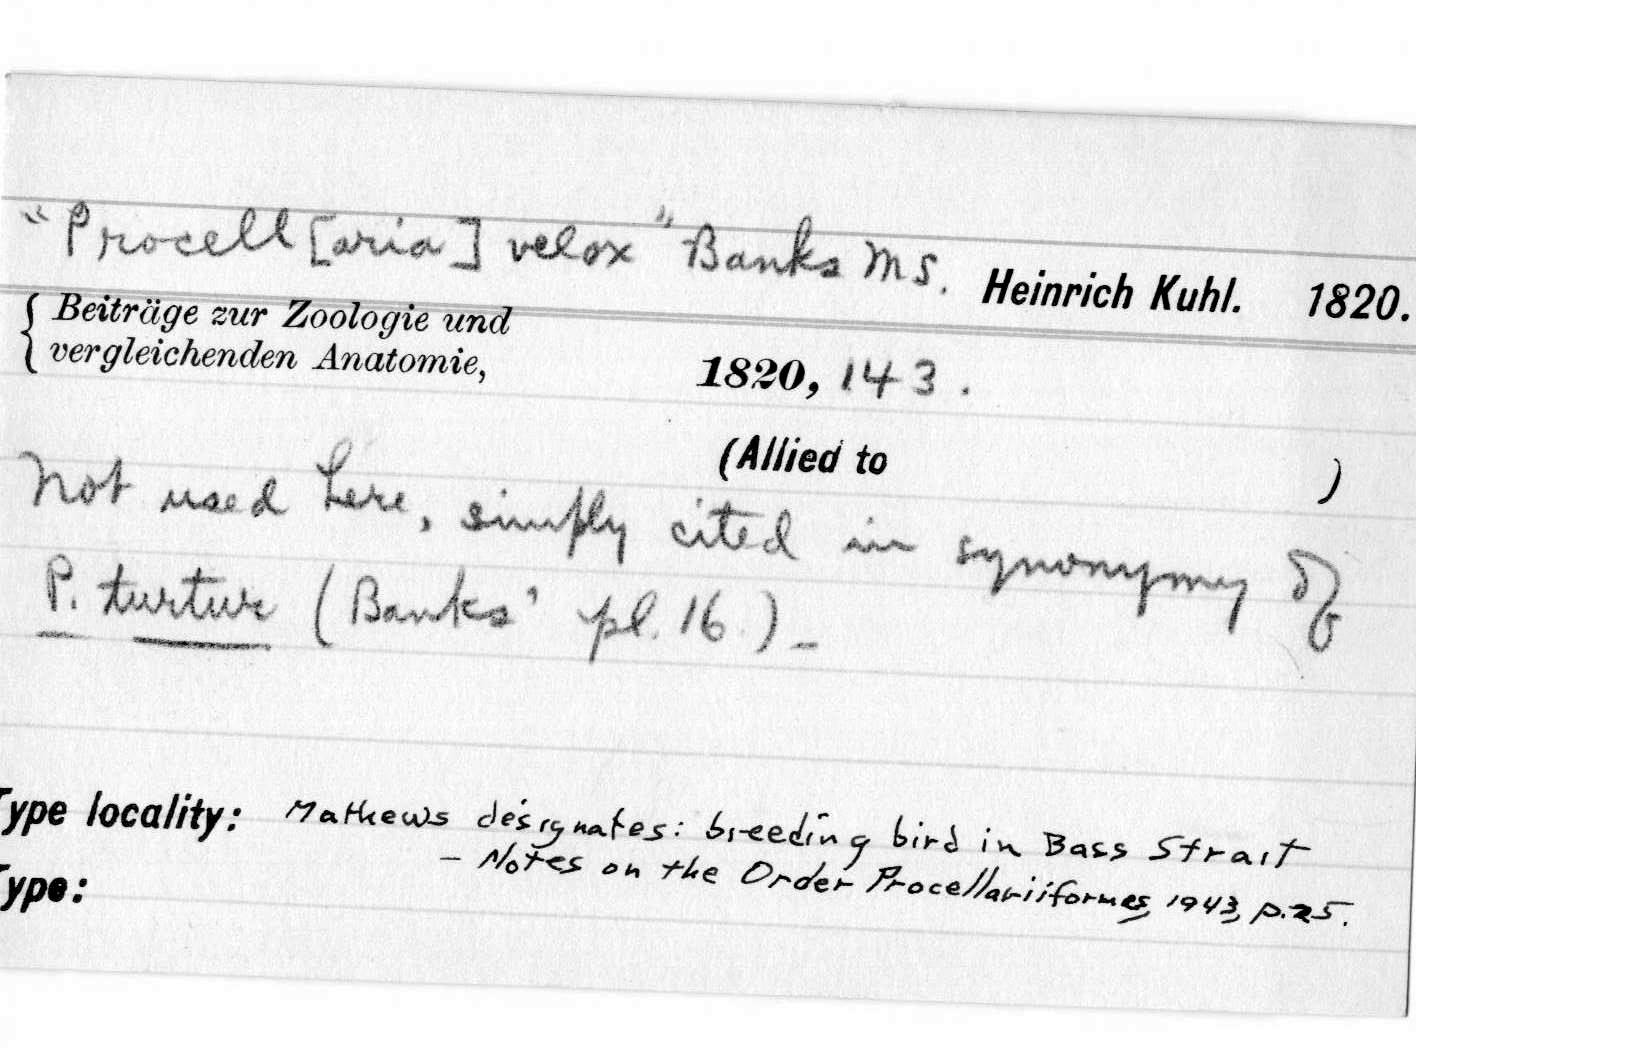 "Procell[aria] velox" Banks MS. Heinrich Kuhl. 1820.
{ Beiträge zur Zoologie und
vergleichenden Anatomie, 1820, 143.
(Allied to )
Not used here, simply cited in synonymy of
P. turtur (Banks' pl. 16.) –
Type locality: Mathews designates: breeding bird in Bass Strait
– Notes on the Order Procellariiformes, 1943, p.25.
Type: